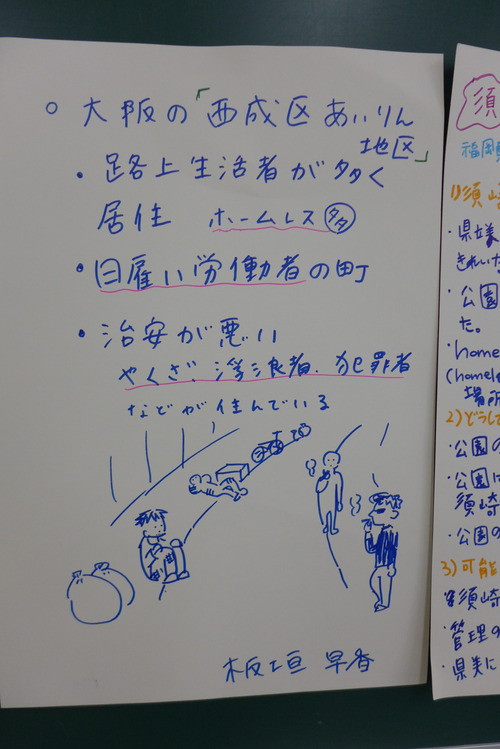 ○ 大阪の「西成区あいりん
地区」
・路上生活者が多く
居住 ホームレス 多
・日雇い労働者の町
・治安が悪い
やくざ、浮浪者、犯罪者
などが住んでいる
板垣 早香
須
福岡
1)須崎
・県様
きれいな
・公園
た。
・home
(homele
場所
2)どうして
・公園の
・公園に
須崎
・公園の
3)可能
須崎
・管理の
・県美に